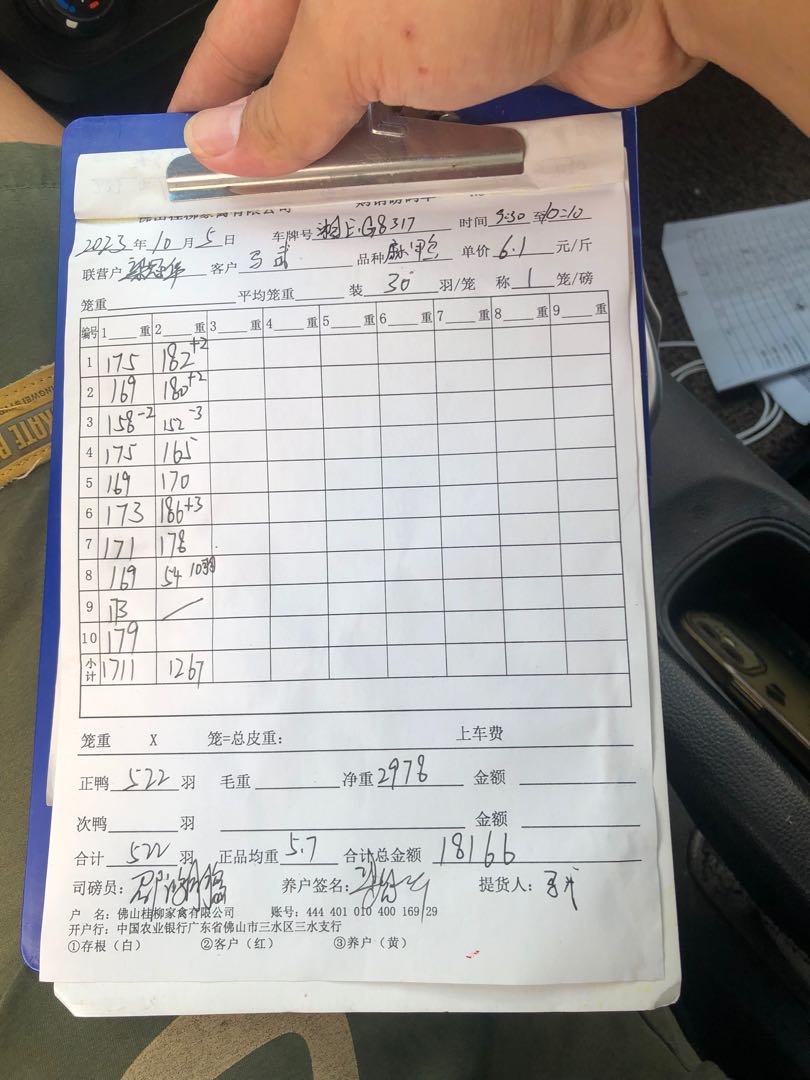 佛山桂柳家禽有限公司 购销磅码单
2023年10月5日 车牌号 湘E·G8317 时间 9:30至10=10
联营户 客户 马武 品种 单价 6.1 元/斤
笼重 平均笼重 装 30 羽/笼 称 1 笼/磅
编号 1 重 2 重 3 重 4 重 5 重 6 重 7 重 8 重 9 重
1 175 182+2
2 169 180+2
3 158-2 152-3
4 175 165
5 169 170
6 173 186+3
7 171 178
8 169 54 10羽
9 173
10 179
小计 1711 1267
笼重 X 笼=总皮重: 上车费
正鸭 522 羽 毛重 净重 2978 金额
次鸭 羽 金额
合计 522 羽 正品均重 5.7 合计总金额 18166
司磅员: 养户签名: 提货人:
户 名: 佛山桂柳家禽有限公司 账号: 444 401 010 400 169 29
开户行: 中国农业银行广东省佛山市三水区三水支行
①存根(白) ②客户(红) ③养户(黄)